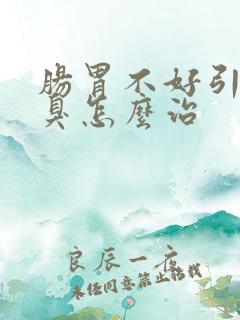 腸胃不好引
臭怎麼治
良辰一夜
未经同意禁止转载